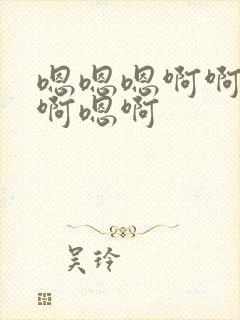 嗯嗯嗯啊啊
啊嗯啊
吴玲